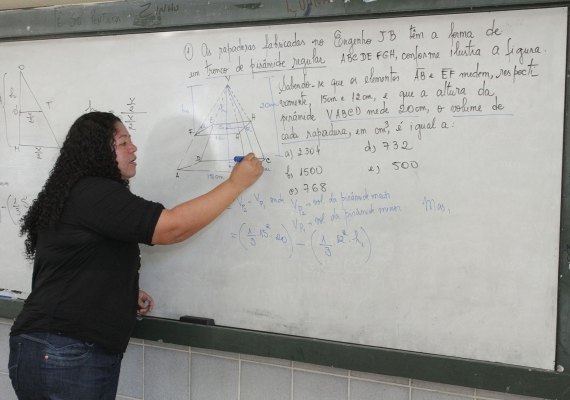 ① As rapaduras fabricadas no Engenho JB têm a forma de
um tronco de pirâmide regular ABCDEFGH, conforme ilustra a figura.
Sabendo-se que os elementos AB e EF medem, respecti
vamente 15cm e 12cm, e que a altura da
pirâmide VABCD mede 20cm, o volume de
cada rapadura, em cm³, é igual a:
a) 2304 d) 732
b) 1500 e) 500
c) 768
V
20cm
F E H
D
A C
15cm
= V₂ - V₁, onde V₂ = vol da pirâmide maior
V₁ = vol da pirâmide menor Mas,
= (1/3 · 15² · 20) - (1/3 · 12² · h₁)